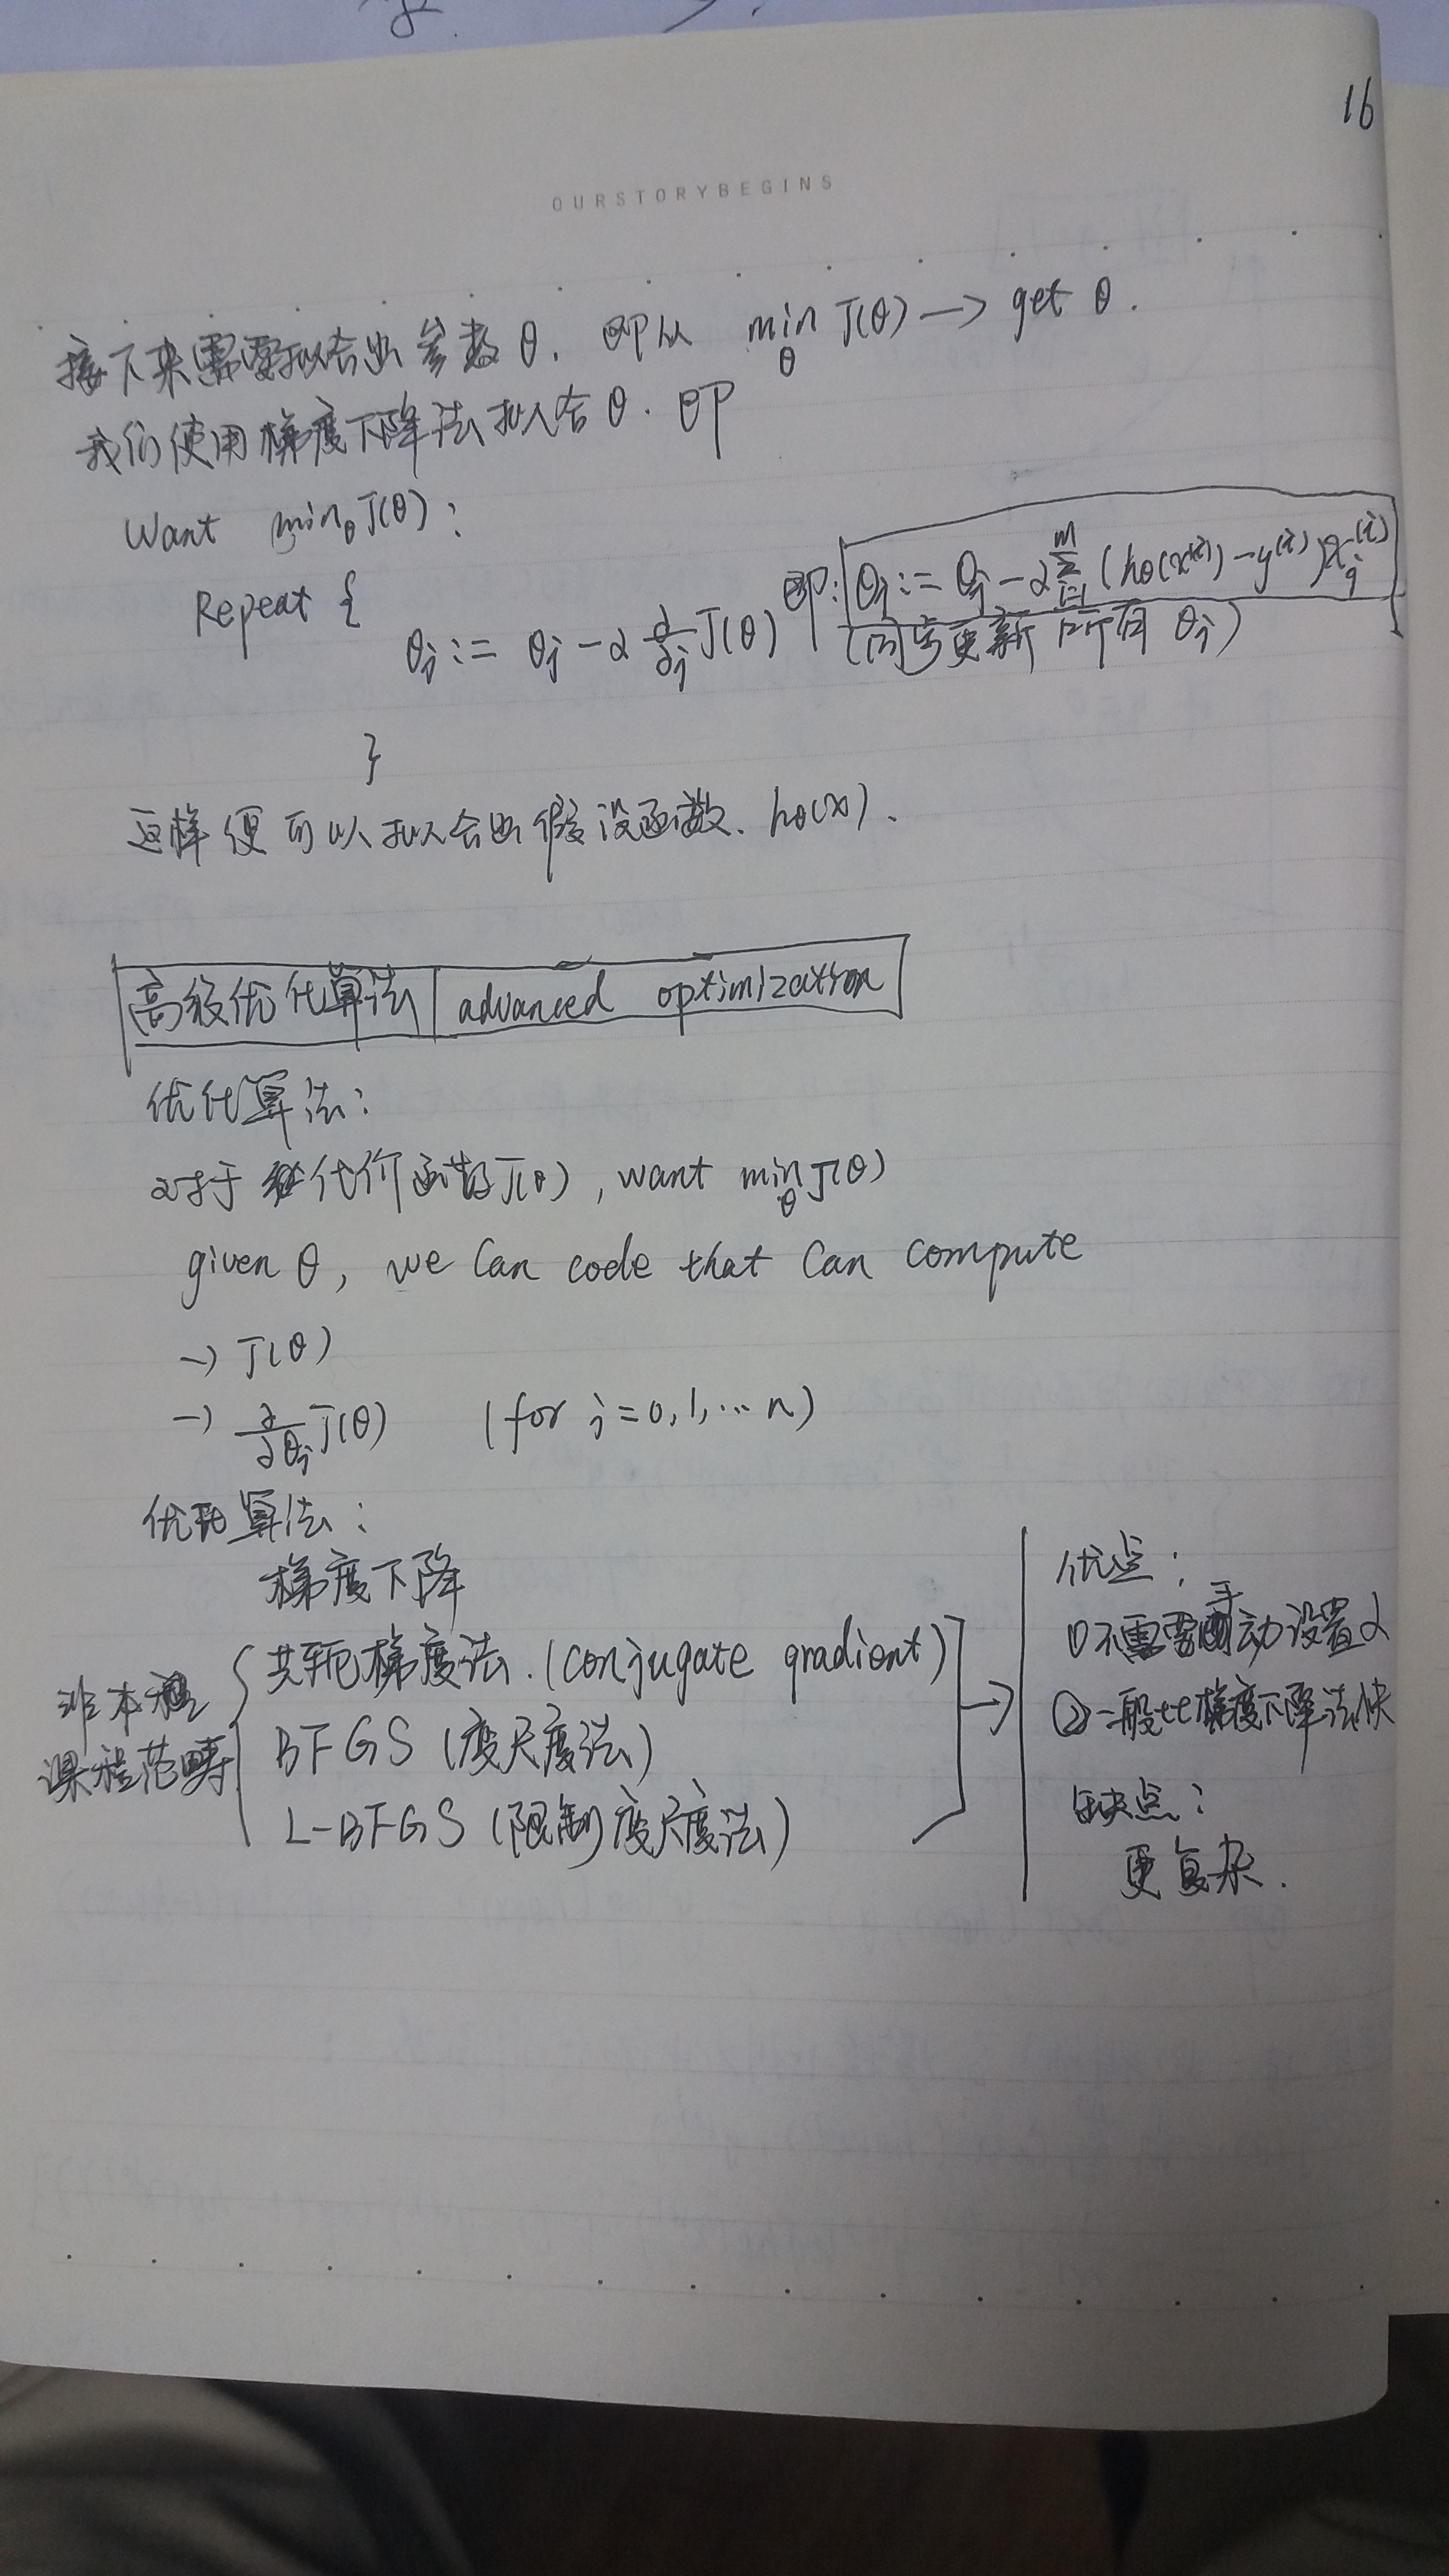 16
OURSTORYBEGINS
接下来需要拟合出参数θ. 即从 min_θ J(θ) → get θ.
我们使用梯度下降法拟合θ. 即
Want min_θ J(θ):
Repeat {
θ_j := θ_j - α ∂/∂_j J(θ) 即: θ_j := θ_j - α Σ_{i=1}^{m} (h_θ(x^{(i)}) - y^{(i)}) x_j^{(i)}
(同步更新所有 θ_j)
}
这样便可以拟合出假设函数. h_θ(x).
高级优化算法 | advanced optimization
优化算法:
对于代价函数J(θ), want min_θ J(θ)
given θ, we can code that can compute
→ J(θ)
→ ∂/∂θ_j J(θ) (for j=0,1,... n)
优化算法:
梯度下降
共轭梯度法. (conjugate gradient)
BFGS (变尺度法)
L-BFGS (限制变尺度法)
非本
课程范畴
优点:
①不需要手动设置α
②一般比梯度下降法快
缺点:
更复杂.